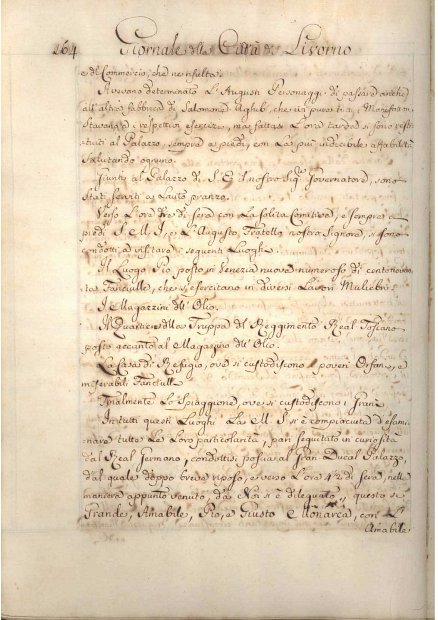 164 Giornale della Città di Livorno
e di Commercio, che ne risulta.
Avevano determinato L'Augusti Personaggi di passare anche
all'altra fabbrica di Salomone Aghib, che ivi pure tai Manifatture
stavano i respettivi esercizi, ma fattasi L'ora tarda si sono resti-
tuiti al Palazzo, sempre a piedi, con La più indicibile affabilità
salutando ognuno.
Giunti al Palazzo di S. E. il nostro Sigre Governatore, sono
Stati serviti a Lauto pranzo.
Verso L'ore di sera con La solita Comitiva, e sempre a
piedi S. M. I. e L'Augusto Fratello nostro Signore, si sono
condotti, a visitare i seguenti Luoghi.
Il Luogo Pio posto in Venezia nuova numeroso di cento
Fanciulle, che si esercitano in diversi Lavori Muliebri.
I Magazzini dell'Olio.
Il Quartiere della Truppa del Reggimento Real Toscano
posto accanto al Magazzino dell'Olio.
La Casa di Refugio, ove si custodiscono i poveri Orfani, e
miserabili Fanciulli
Finalmente Lo Spiaggione, ove si custodiscono i Grani
In tutti questi Luoghi La M. S. si è compiaciuta d'esami-
nare tutte Le Loro particolarità, pari seguitato in curiosità
dal Real Germano, condottisi poscia al Gran Ducal Palazzo,
dal quale doppo breve riposo, e verso L'ore 4½ di sera, nella
maniera appunto venuto, da Noi si è dileguato, questo sì
Grande, Amabile, Pio, e Giusto Monarca, con L'
Amabile